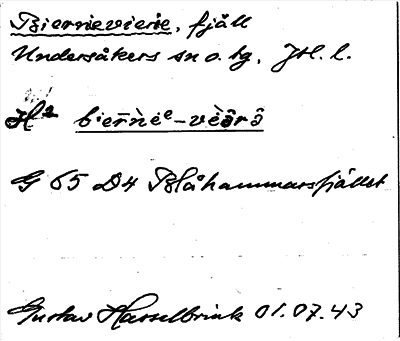 Biernievierie, fjäll
Undersåkers sn o. tg, Jtl. l.
H² bi̯er̄nèi̯e-vèǡrȱ
G 65 D4 Blåhammarsfjället
Gustav Hasselbrink 01.07.43